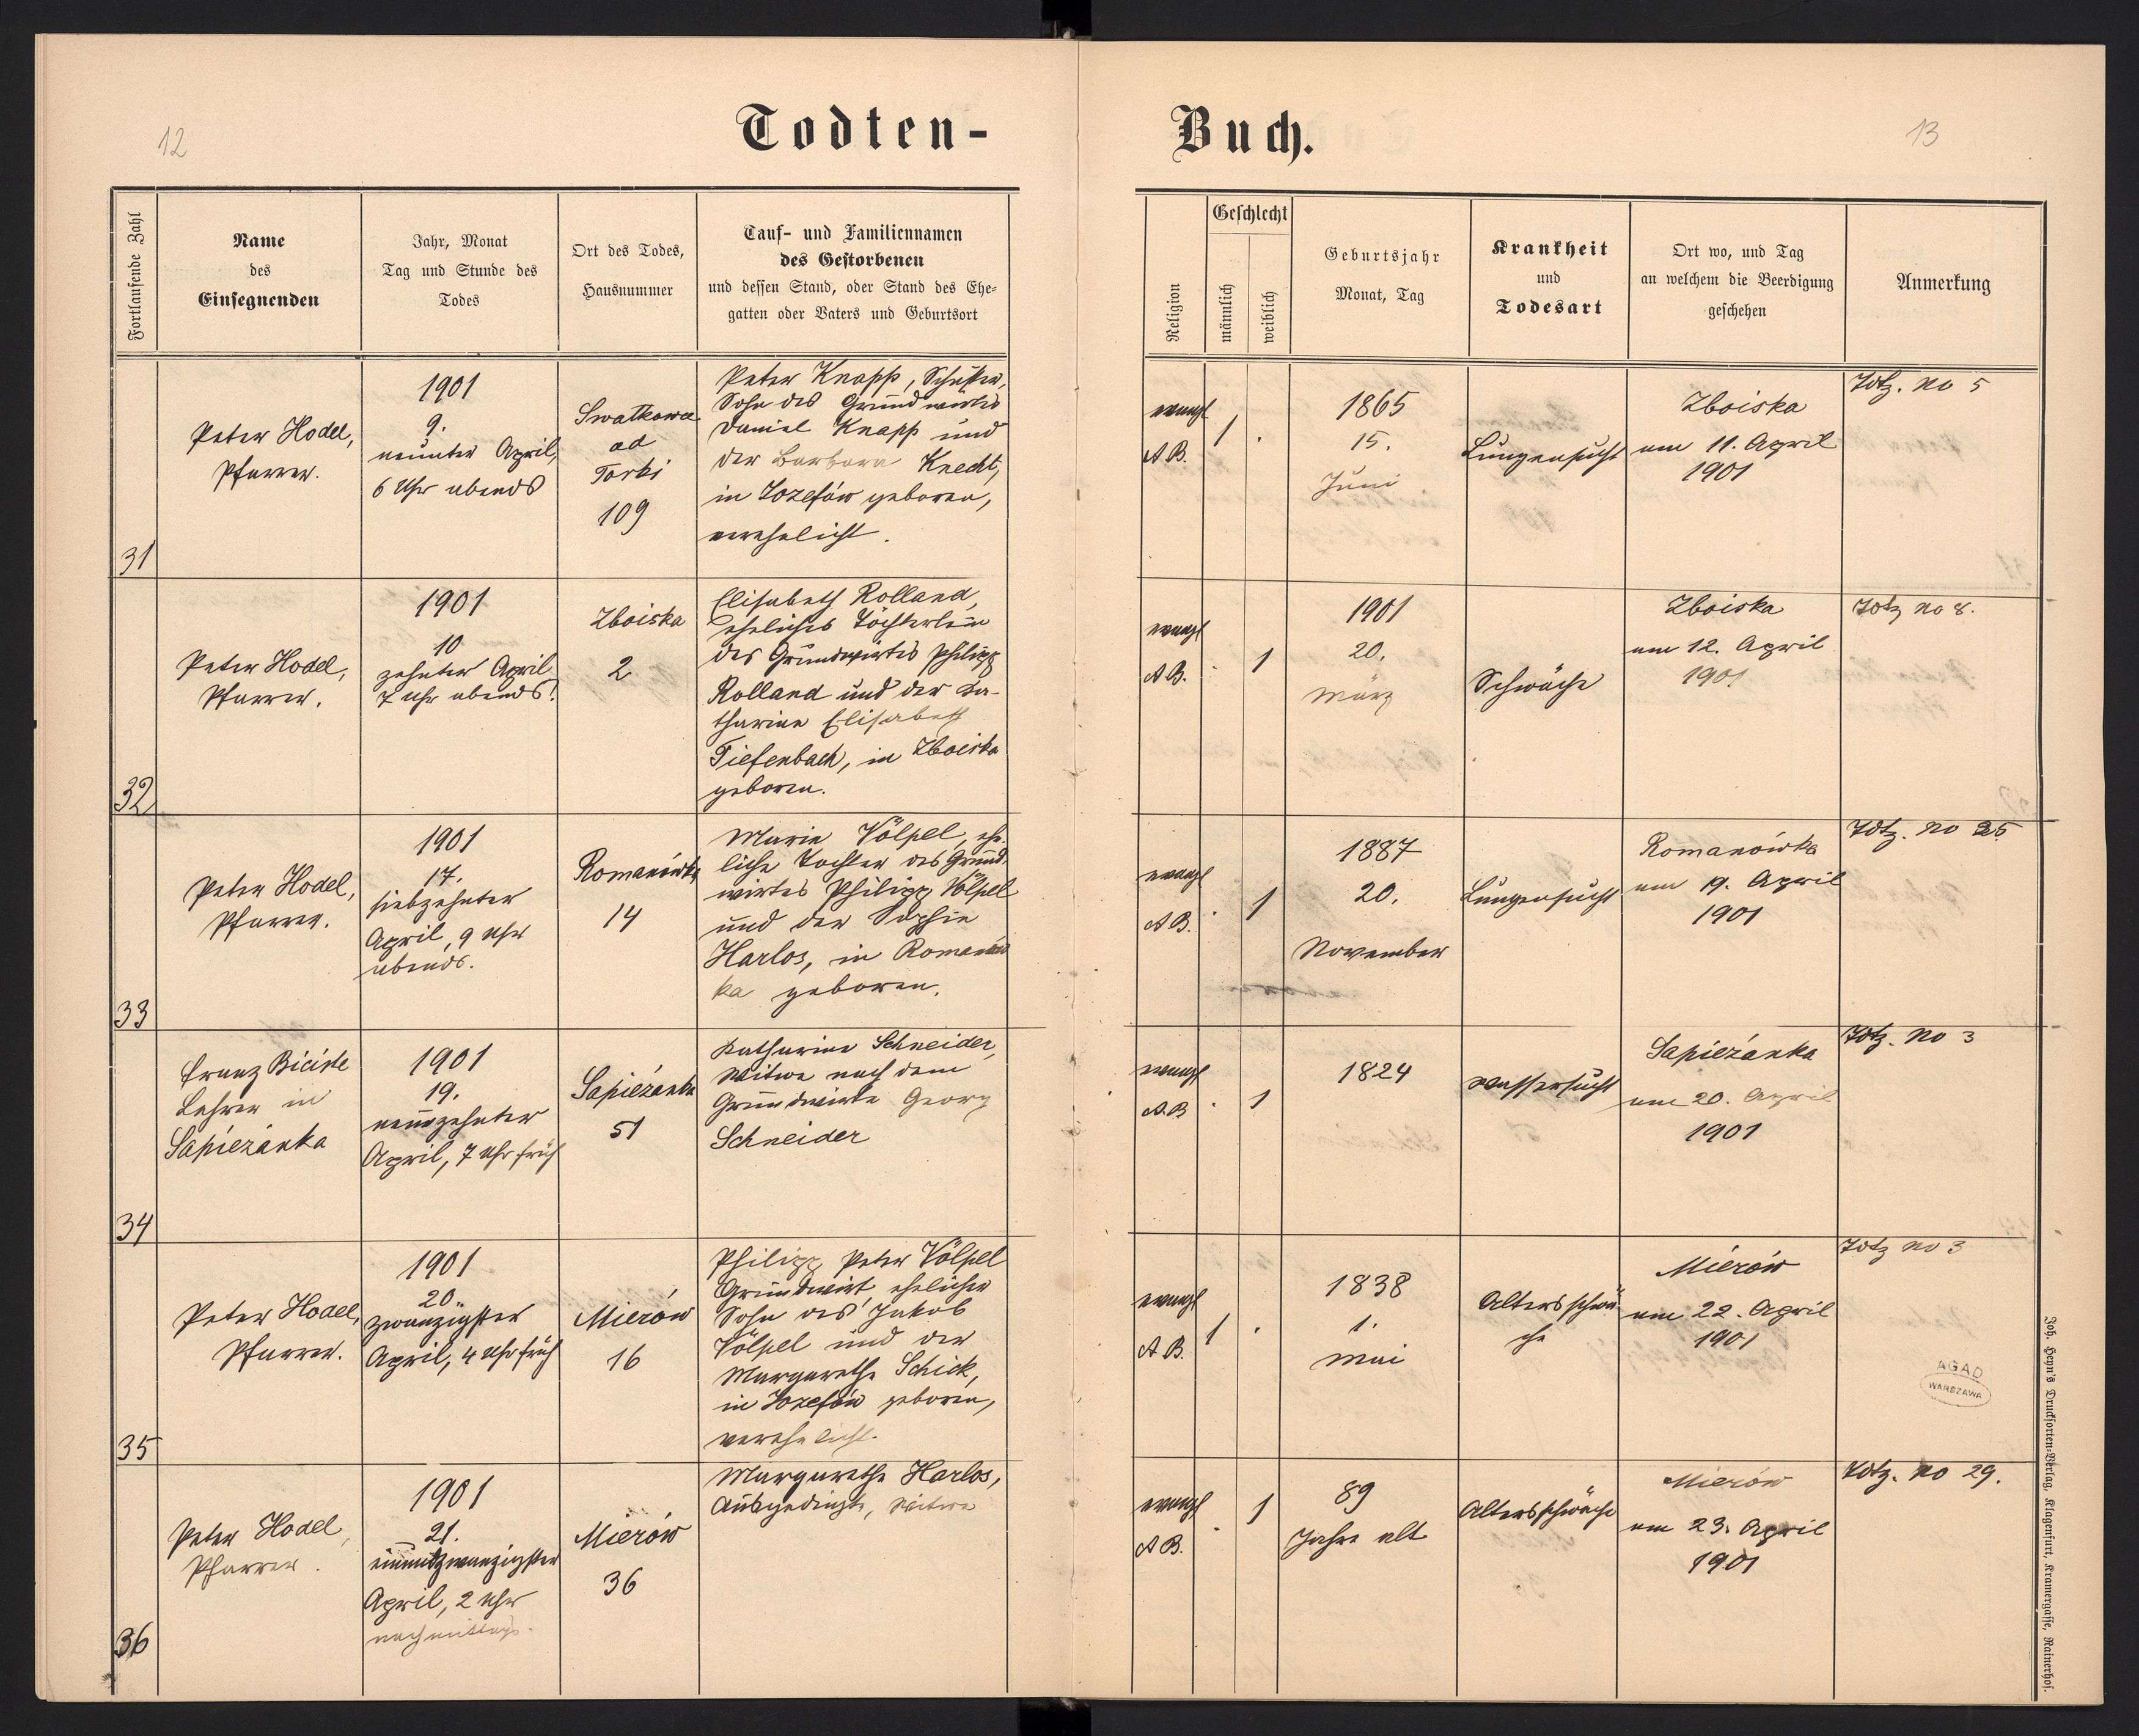 12
Todten-
Buch.
13
Fortlaufende Zahl
Name
des
Einsegnenden
Jahr, Monat
Tag und Stunde des
Todes
Ort des Todes,
Hausnummer
Tauf- und Familiennamen
des Gestorbenen
und dessen Stand, oder Stand des Ehe-
gatten oder Vaters und Geburtsort
Religion
Geschlecht
männlich
weiblich
Geburtsjahr
Monat, Tag
Krankheit
und
Todesart
Ort wo, und Tag
an welchem die Beerdigung
geschehen
Anmerkung
31
Peter Hodel,
Pfarrer.
1901
9.
neunter April,
6 Uhr abends
ad
Torki
109
Peter Knapp,
Sohn des Grundwirts
Daniel Knapp und
der Barbara Knecht,
in Josefów geboren,
verehelicht.
evangl
A.B.
1
1865
15.
Juni
Lungensucht
Zboiska
am 11. April
1901
no 5
32
Peter Hodel,
Pfarrer.
1901
10
zehnter April
7 Uhr abends!
Zboiska
2
Elisabeth Rolland,
eheliches Töchterlein
des Grundwirtes Philipp
Rolland und der Ka-
tharina Elisabeth
Tiefenbach, in Zboiska
geboren.
evangl
A.B.
1
1901
20.
März
Schwäche
Zboiska
am 12. April
1901
no 8.
33
Peter Hodel,
Pfarrer.
1901
17.
siebzehnter
April, 9 Uhr
abends.
Romanówka
14
Marie Völpel, ehe-
liche Tochter des Grund-
wirtes Philipp Völpel
und der Sophie
Harlos, in Romanów
ka geboren.
evangl
A.B.
1
1887
20.
November
Lungensucht
Romanówka
am 19. April
1901
no 25
34
Franz
Lehrer in
Sapieżanka
1901
19.
neunzehnter
April, 7 Uhr früh
Sapieżanka
51
Katharina Schneider,
Witwe nach dem
Grundwirte Georg
Schneider
evangl
A.B
1
1824
Wassersucht
Sapieżanka
am 20. April
1901
no 3
35
Peter Hodel,
Pfarrer.
1901
20.
zwanzigster
April, 4 Uhr früh
Mierów
16
Philipp Peter Völpel
Grundwirt, ehelicher
Sohn des Jakob
Völpel und der
Margarethe Schick,
in Josefów geboren,
verehelicht.
evangl
A.B.
1
1838
1.
Mai
Altersschwä
che
Mierów
am 22. April
1901
no 3
AGAD
WARSZAWA
36
Peter Hodel,
Pfarrer.
1901
21.
einundzwanzigster
April, 2 Uhr
nachmittags.
Mierów
36
Margarethe Harlos,
Ausgedingte, Witwe
evangl
A.B.
1
89
Jahre alt
Altersschwäche
Mierów
am 23. April
1901
no 29.
Joh. Heyn's Drucksorten-Verlag, Klagenfurt, Kramergasse, Rainerhof.